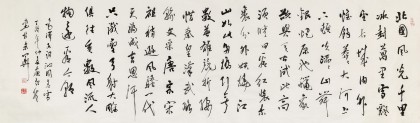 北國風光千里
冰封萬里雪飄
望長城內外
惟餘莽莽大河上
下頓失滔滔山舞
銀蛇原馳蠟象欲
與天公試比高
須晴日看紅裝素
裹分外妖嬈江
山如此多嬌引
無數英雄競折腰
惜秦皇漢武略輸
文采唐宗宋
祖稍遜風騷一代
天驕成吉思汗
只識彎弓射大雕
俱往矣數風流人
物還看今朝